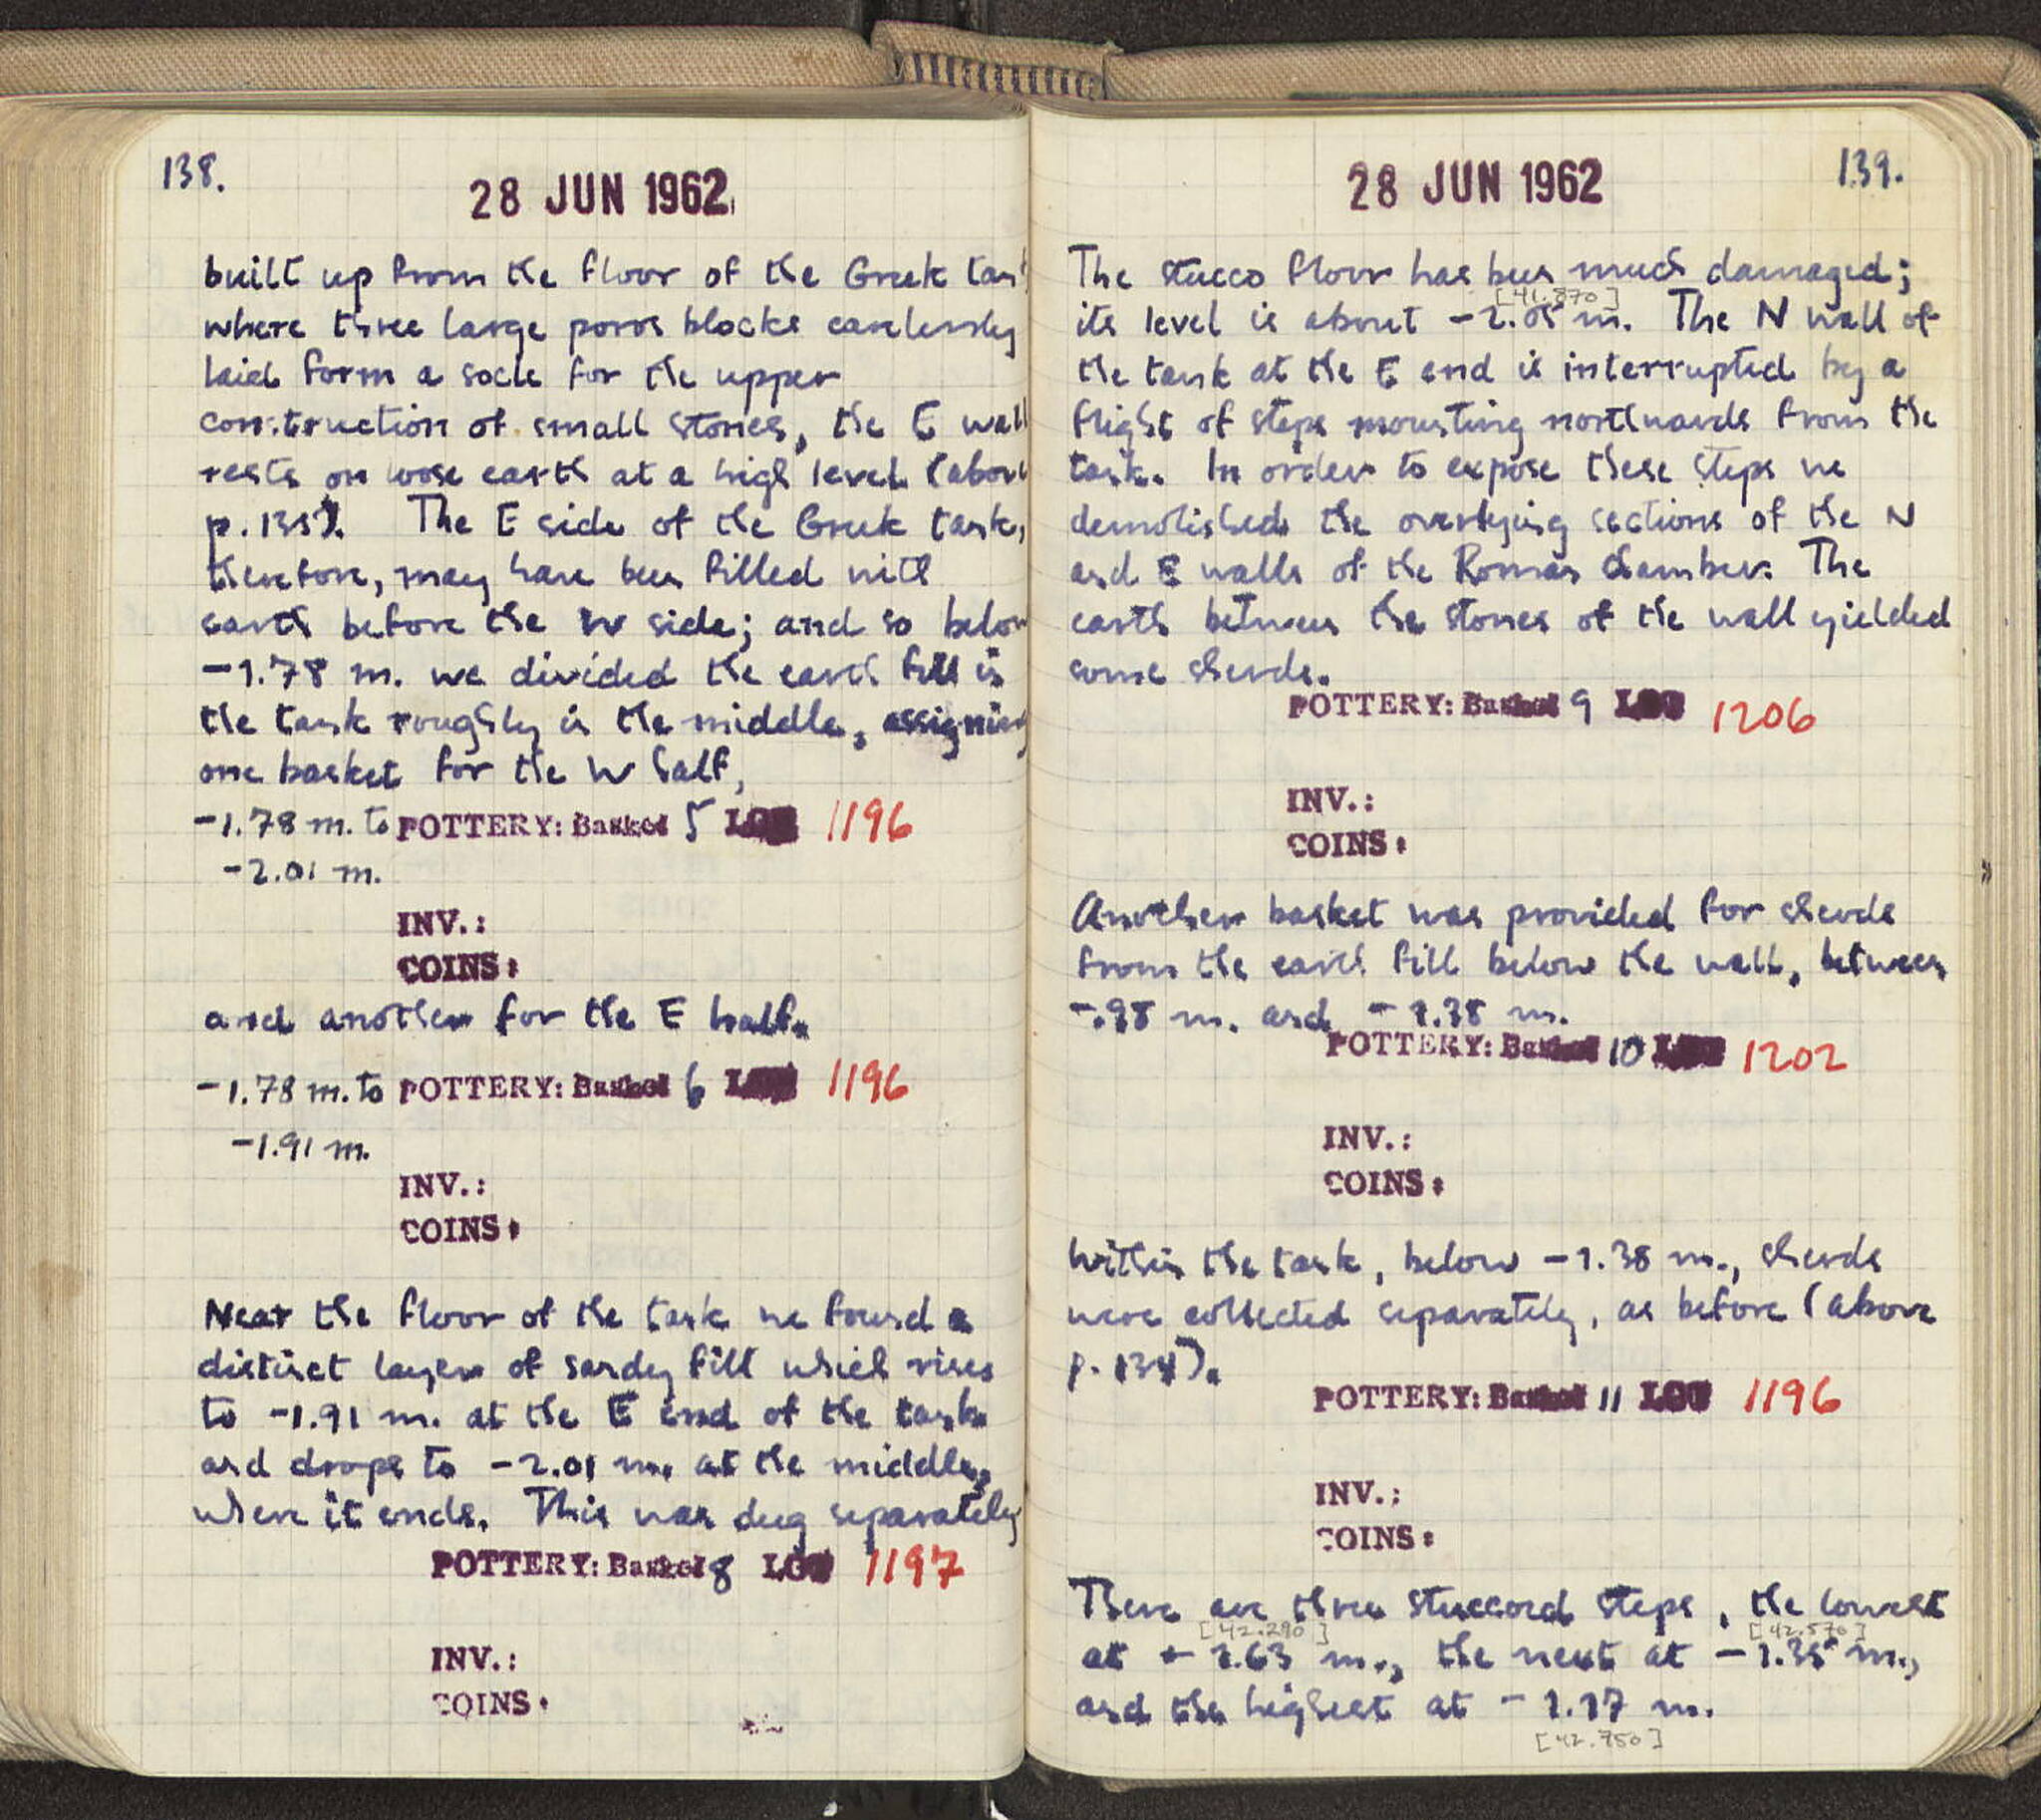 138.
28 JUN 1962
built up from the floor of the Greek tank
where three large poros blocks carelessly
laid form a socle for the upper
construction of small stones, the E wall
rests on loose earth at a high level (above
p. 135). The E side of the Greek tank,
therefore, may have been filled with
earth before the W side; and so below
-1.78 m. we divided the earth fill in
the tank roughly in the middle, assigning
one basket for the W half,
-1.78 m. to POTTERY: Basket 5 LOT 1196
-2.01 m.
INV.:
COINS:
and another for the E half.
-1.78 m. to POTTERY: Basket 6 LOT 1196
-1.91 m.
INV.:
COINS:
Near the floor of the tank we found a
distinct layer of sandy fill which rises
to -1.91 m. at the E end of the tank
and drops to -2.01 m. at the middle,
where it ends. This was dug separately
POTTERY: Basket 8 LOT 1197
INV.:
COINS:
28 JUN 1962
139.
The stucco floor has been much damaged;
[41.870]
its level is about -2.05 m. The N wall of
the tank at the E end is interrupted by a
flight of steps mounting northwards from the
tank. In order to expose these steps we
demolished the overlying sections of the N
and E walls of the Roman chamber. The
earth between the stones of the wall yielded
some sherds.
POTTERY: Basket 9 LOT 1206
INV.:
COINS:
Another basket was provided for sherds
from the earth fill below the wall, between
-.98 m. and -1.38 m.
POTTERY: Basket 10 LOT 1202
INV.:
COINS:
Within the tank, below -1.38 m., sherds
were collected separately, as before (above
p. 134).
POTTERY: Basket 11 LOT 1196
INV.:
COINS:
There are three stuccoed steps, the lowest
[42.290] [42.570]
at -1.63 m., the next at -1.35 m.,
and the highest at -1.17 m.
[42.750]